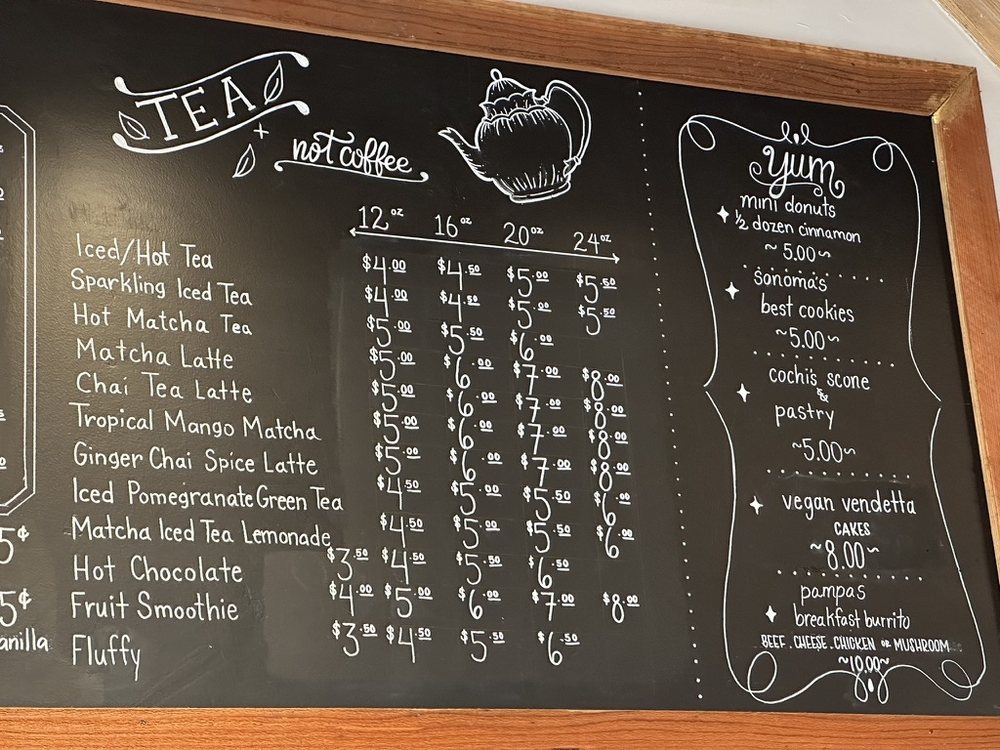 TEA
+ not coffee
12 oz 16 oz 20 oz 24 oz
Iced/Hot Tea $4.00 $4.50 $5.00 $5.50
Sparkling Iced Tea $4.00 $4.50 $5.00 $5.50
Hot Matcha Tea $5.00 $5.50 $6.00
Matcha Latte $5.00 $6.00 $7.00 $8.00
Chai Tea Latte $5.00 $6.00 $7.00 $8.00
Tropical Mango Matcha $5.00 $6.00 $7.00 $8.00
Ginger Chai Spice Latte $5.00 $6.00 $7.00 $8.00
Iced Pomegranate Green Tea $4.50 $5.00 $5.50 $6.00
Matcha Iced Tea Lemonade $4.50 $5.00 $5.50 $6.00
Hot Chocolate $3.50 $4.50 $5.50 $6.50
Fruit Smoothie $4.00 $5.00 $6.00 $7.00 $8.00
Fluffy $3.50 $4.50 $5.50 $6.50
5¢
5¢
anilla
yum
mini donuts
½ dozen cinnamon
~5.00~
sonoma's
best cookies
~5.00~
cochi's scone
&
pastry
~5.00~
vegan vendetta
CAKES
~8.00~
pampas
breakfast burrito
BEEF . CHEESE . CHICKEN OR MUSHROOM
~10.00~